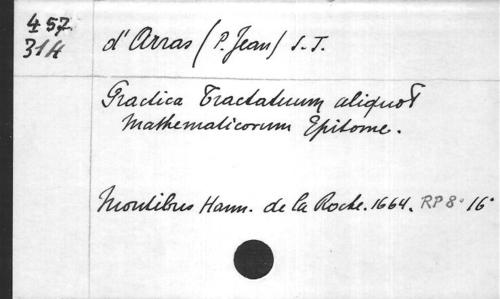 457
314
d'Arras (P. Jean) S.J.
Practica Tractatuum aliquot
Mathematicorum Epitome.
Montibus Hann. de la Roche. 1664. RP 8° 16°